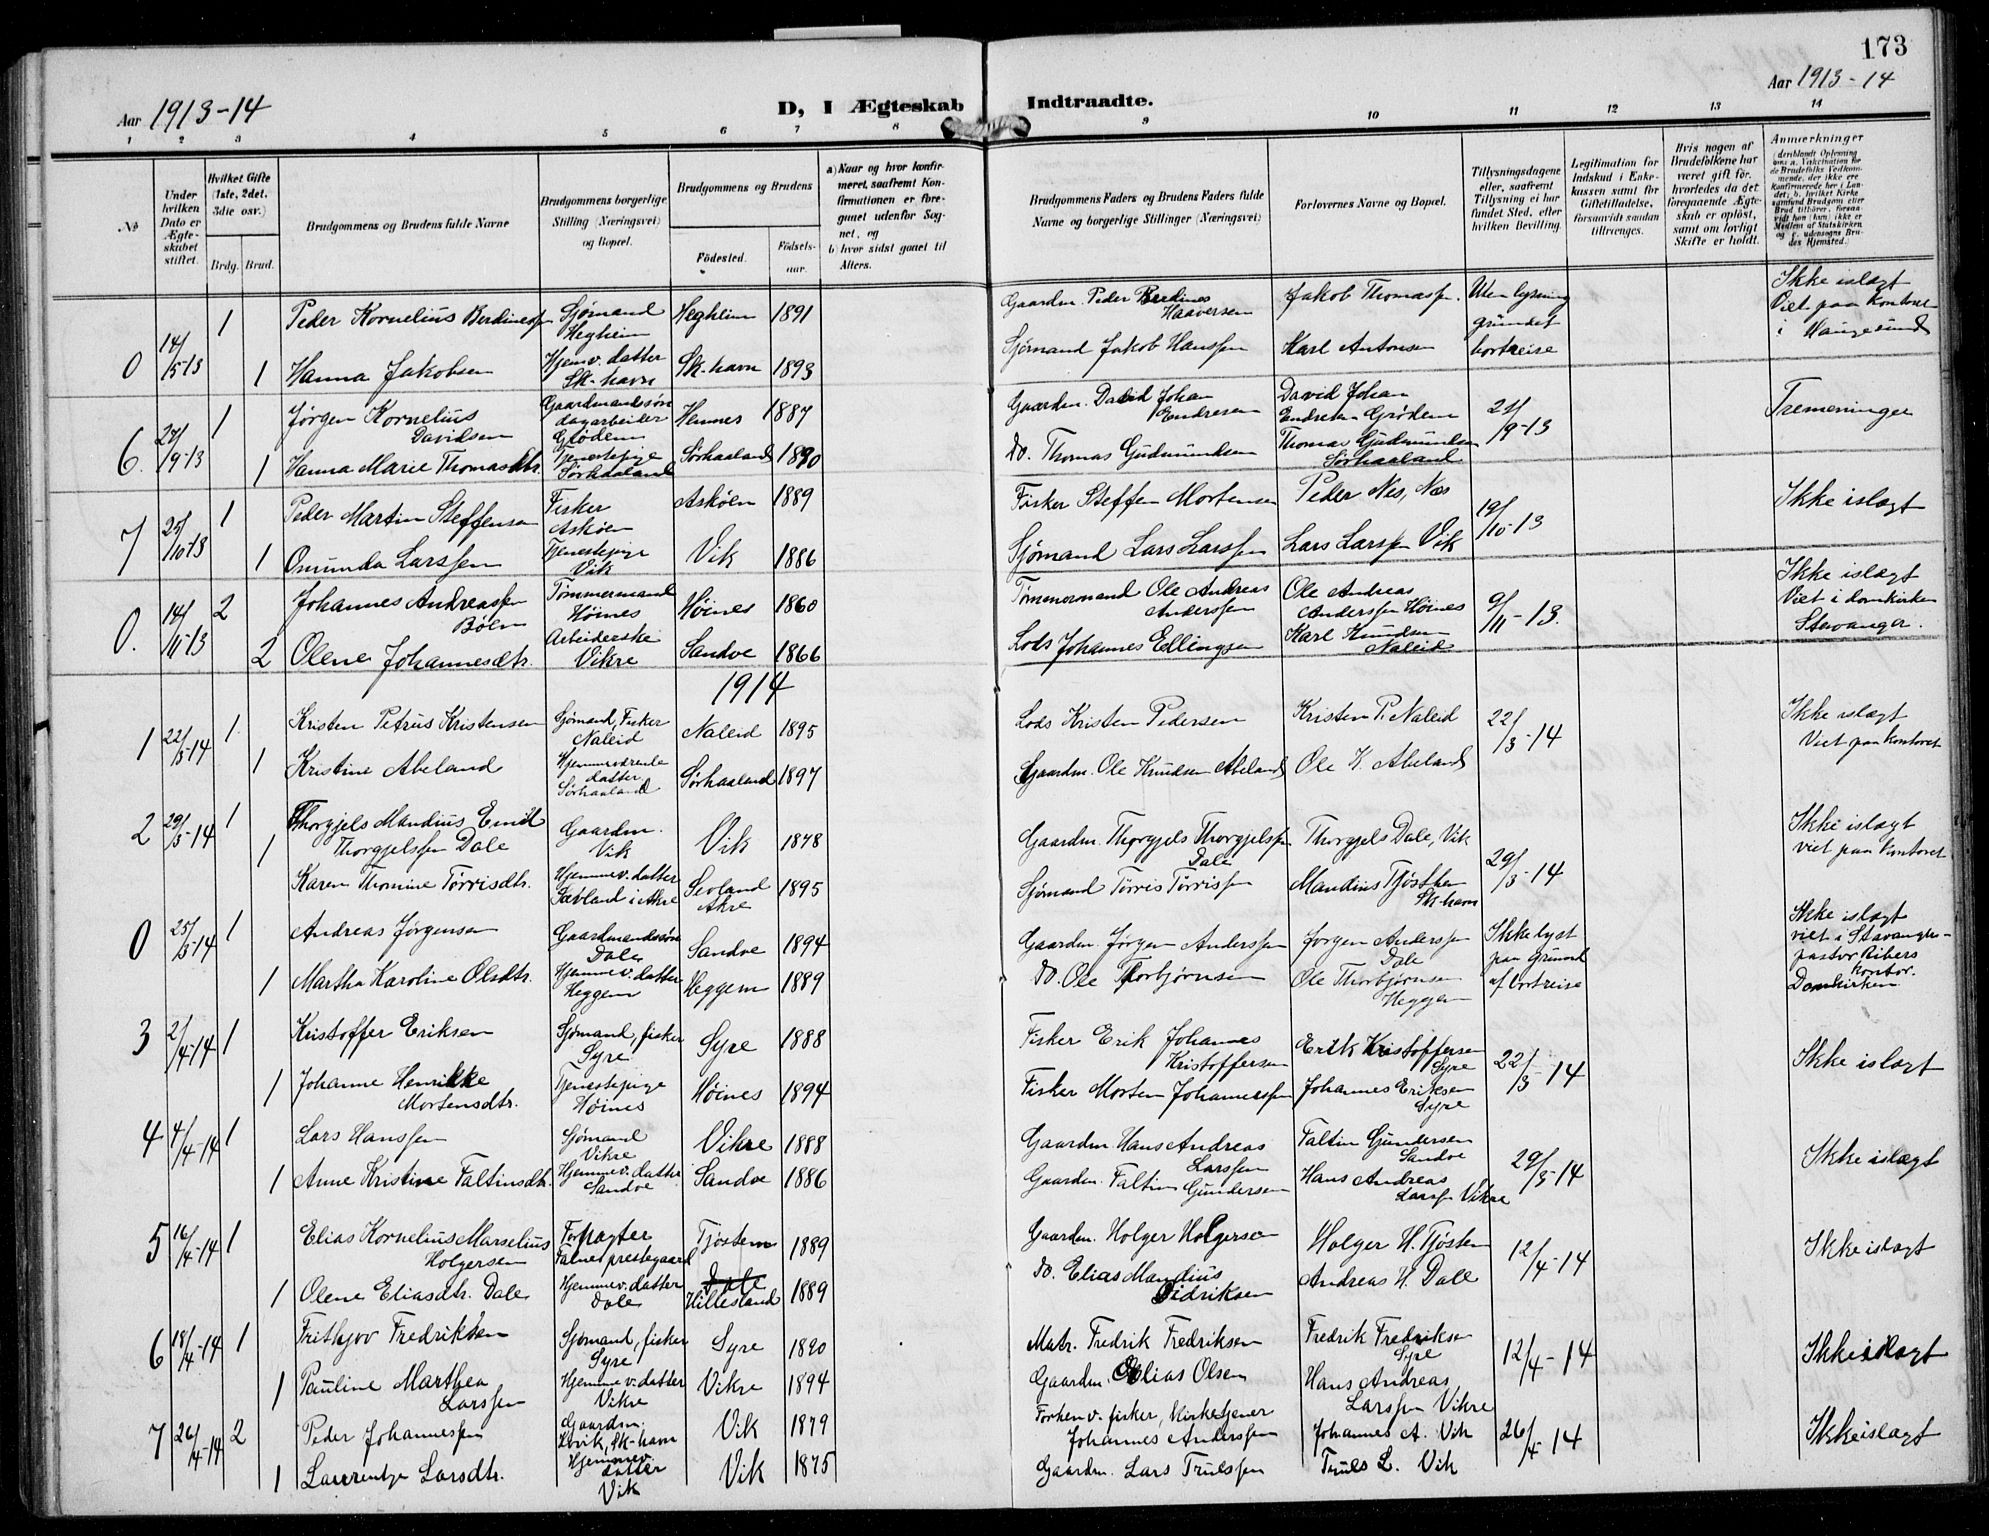 173
Aar 1913-14
D, I Ægteskab Indtraadte.
Aar 1913-14
1 2 3 4 5 6 7 8 9 10 11 12 13 14
№
Under hvilken Dato er Ægteskabet stiftet.
Hvilket Gifte (1ste, 2det, 3die osv.)
Brdg. Brud.
Brudgommens og Brudens fulde Navne
Brudgommens borgerlige Stilling (Næringsvei) og Bopæl.
Brudgommens og Brudens
Fødested.
Fødsels-aar.
a) Naar og hvor konfirmeret, saafremt Konfirmationen er foregaaet udenfor Sognet, og
b) hvor sidst gaaet til Alters.
Brudgommens Faders og Brudens Faders fulde Navne og borgerlige Stillinger (Næringsvei)
Forlovernes Navne og Bopæl.
Tillysningsdagene eller, saafremt Tillysning ei har fundet Sted, efter hvilken Bevilling.
Legitimation for Indskud i Enkekassen samt for Giftetilladelse, forsaavidt saadan tiltrænges.
Hvis nogen af Brudefolkene har været gift før, hvorledes da det foregaaende Ægteskab er opløst, samt om lovligt Skifte er holdt.
Anmærkninger
0 14/5-13 1 Peder Kornelius Berdinessen Sjømand Hegheim Heghiem 1891 Gaardm. Peder Berdines Haaversen Jakob Thomassen. Uten lysning grundet bortreise Ikke islægt Viet paa kontoret i Haugesund
1 Hanna Jakobsen Hjemv. datter Sk-havn Sk-havn 1893 Sjømand Jakob Hanssen Karl Antonsen
6. 27/9-13 1 Jørgen Kornelius Davidsen Gaardmandssøn dagarbeider Grødem Hemnes 1887 Gaardm. David Johan Endresen David Johan Endresen Grødem 21/9-13 Tremeninger
1 Hanna Marie Thomasdtr. Tjenestepige Sørhaaland Sørhaaland 1890 Do. Thomas Gudmundsen Thomas Gudmundsen Sørhaaland
7 25/10-13 1 Peder Martin Steffensen Fisker Askøen Askøen 1889 Fisker Steffen Mortensen Peder Nes, Næs 19/10-13 Ikke islægt
1 Omunda Larssen Tjenestepige Vik Vik 1886 Sjømand Lars Larssen Lars Larssen Vik
0. 14/11-13 2 Johannes Andreassen Bøen Tømmermand Høines Høines 1860 Tømmermand Ole Andreas Anderssen Ole Andreas Anderssen Høines 9/11-13. Ikke islægt Viet i domkirken Stavanger.
2 Olene Johannesdtr. Arbeiderske Vikre Sandve 1866 Lods Johannes Ellingsen Karl Knudsen Naleid
1914
1 22/3-14 1. Kristen Petrus Kristensen Sjømand, Fisker Naleid Naleid 1895 Lods Kristen Pedersen Kristen P. Naleid 22/3-14 Ikke islægt Viet paa kontoret
1 Kristine Abeland Hjemmeværende datter Sørhaaland Sørhaaland 1897 Gaardm. Ole Knudsen Abeland Ole K. Abeland
2 29/3-14 1 Thorgjels Mandius Emil Thorgjelssen Dale Gaardm. Vik Vik 1878 Gaardm. Thorgjels Thorgjelssen Dale Thorgjels Dale, Vik 29/3-14 Ikke islægt viet paa kontoret
1 Karen Thomine Tørrisdtr. Hjemmev. datter Sævland i Akre Sevland Akre 1895 Sjømand Tørris Tørrissen Mandius Tjøsthem Sk-havn
0 25/3-14 1 Andreas Jørgensen Gaardmandssøn Dale Sandve 1894 Gaardm. Jørgen Anderssen Jørgen Anderssen Dale Ikke lyst paa Grund af bortreise Ikke islægt viet i Stavanger pastor Ribers kontor. Domkirken
1 Martha Karoline Olsdtr. Hjemmev. datter Heggem Heggem 1889 Do. Ole Thorbjørnsen Ole Thorbjørnsen Heggem
3 2/4-14 1 Kristoffer Eriksen Sjømand, fisker Syre Syre 1888 Fisker Erik Johannes Kristoffersen Erik Kristoffersen Syre 22/3-14 Ikke islægt
1 Johanne Henrikke Mortensdtr. Tjenestepige Høines Høines 1894 Fisker Morten Johannessen Johannes Eriksen Syre
4 4/4-14 1 Lars Hanssen Sjømand Vikre Vikre 1888 Gaardm Hans Andreas Larssen Faltin Gundersen Sandve 29/3-14 Ikke islægt
1 Anne Kristine Faltinsdtr. Hjemmev. datter Sandve Sandve 1886 Gaardm. Faltin Gundersen Hans Andreas Larssen Vikre
5 16/4-14 1 Elias Kornelius Marselius Holgersen Forpagter Falnes prestegaard Tjøstem 1889 Gaardm. Holger Holgersen Holger H. Tjøsten 12/4-14 Ikke islægt
1 Olene Eliasdtr. Dale Hjemmev. datter Dale Dale Hillesland 1889 Do. Elias Mandius Didriksen Andreas H. Dale
6 18/4-14 1 Frithjov Fredriksen Sjømand, fisker Syre Syre 1890 Matr. Fredrik Fredriksen Fredrik Fredriksen Syre 12/4-14 Ikke islægt
1 Pauline Marthea Larssen Hjemmev. datter Vikre Vikre 1894 Gaardm. Elias Olsen Hans Andreas Larssen Vikre
7 26/4-14 2 Peder Johannessen Gaardm. Vik, Sk-havn Vik 1879 Forhenv. fisker, kirketjener Johannes Anderssen Johannes A. Vik 26/4-14 Ikke islægt
1 Laurentze Larsdtr. Hjemmev. datter Vik Vik 1875 Gaardm. Lars Trulssen Truls L. Vik